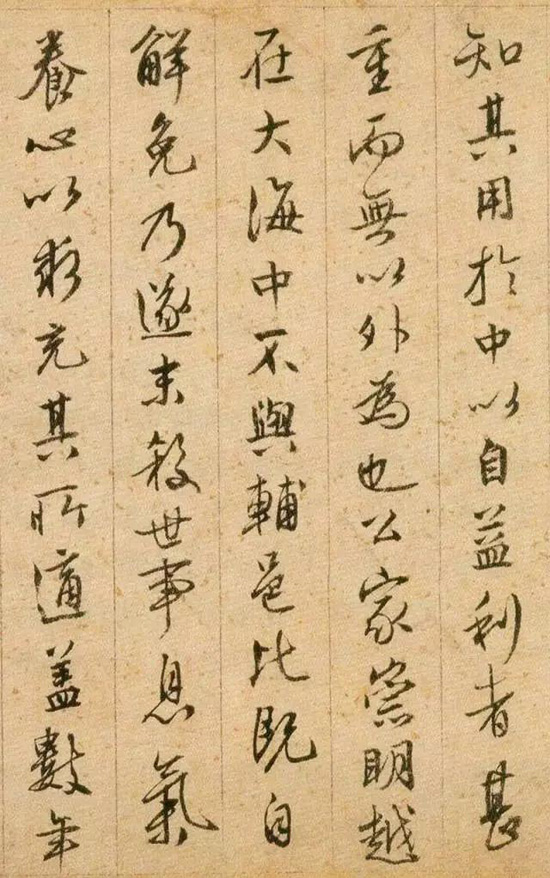 知其用於中以自益利者甚
重而無以外為也公家崇明越
在大海中不與輔邑比既自
解免乃遂末殺世事息氣
養心以求充其所適蓋數年